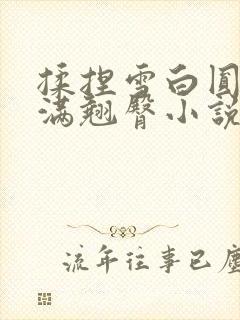 揉捏雪白圆
满翘臀小說
流年往事已塵